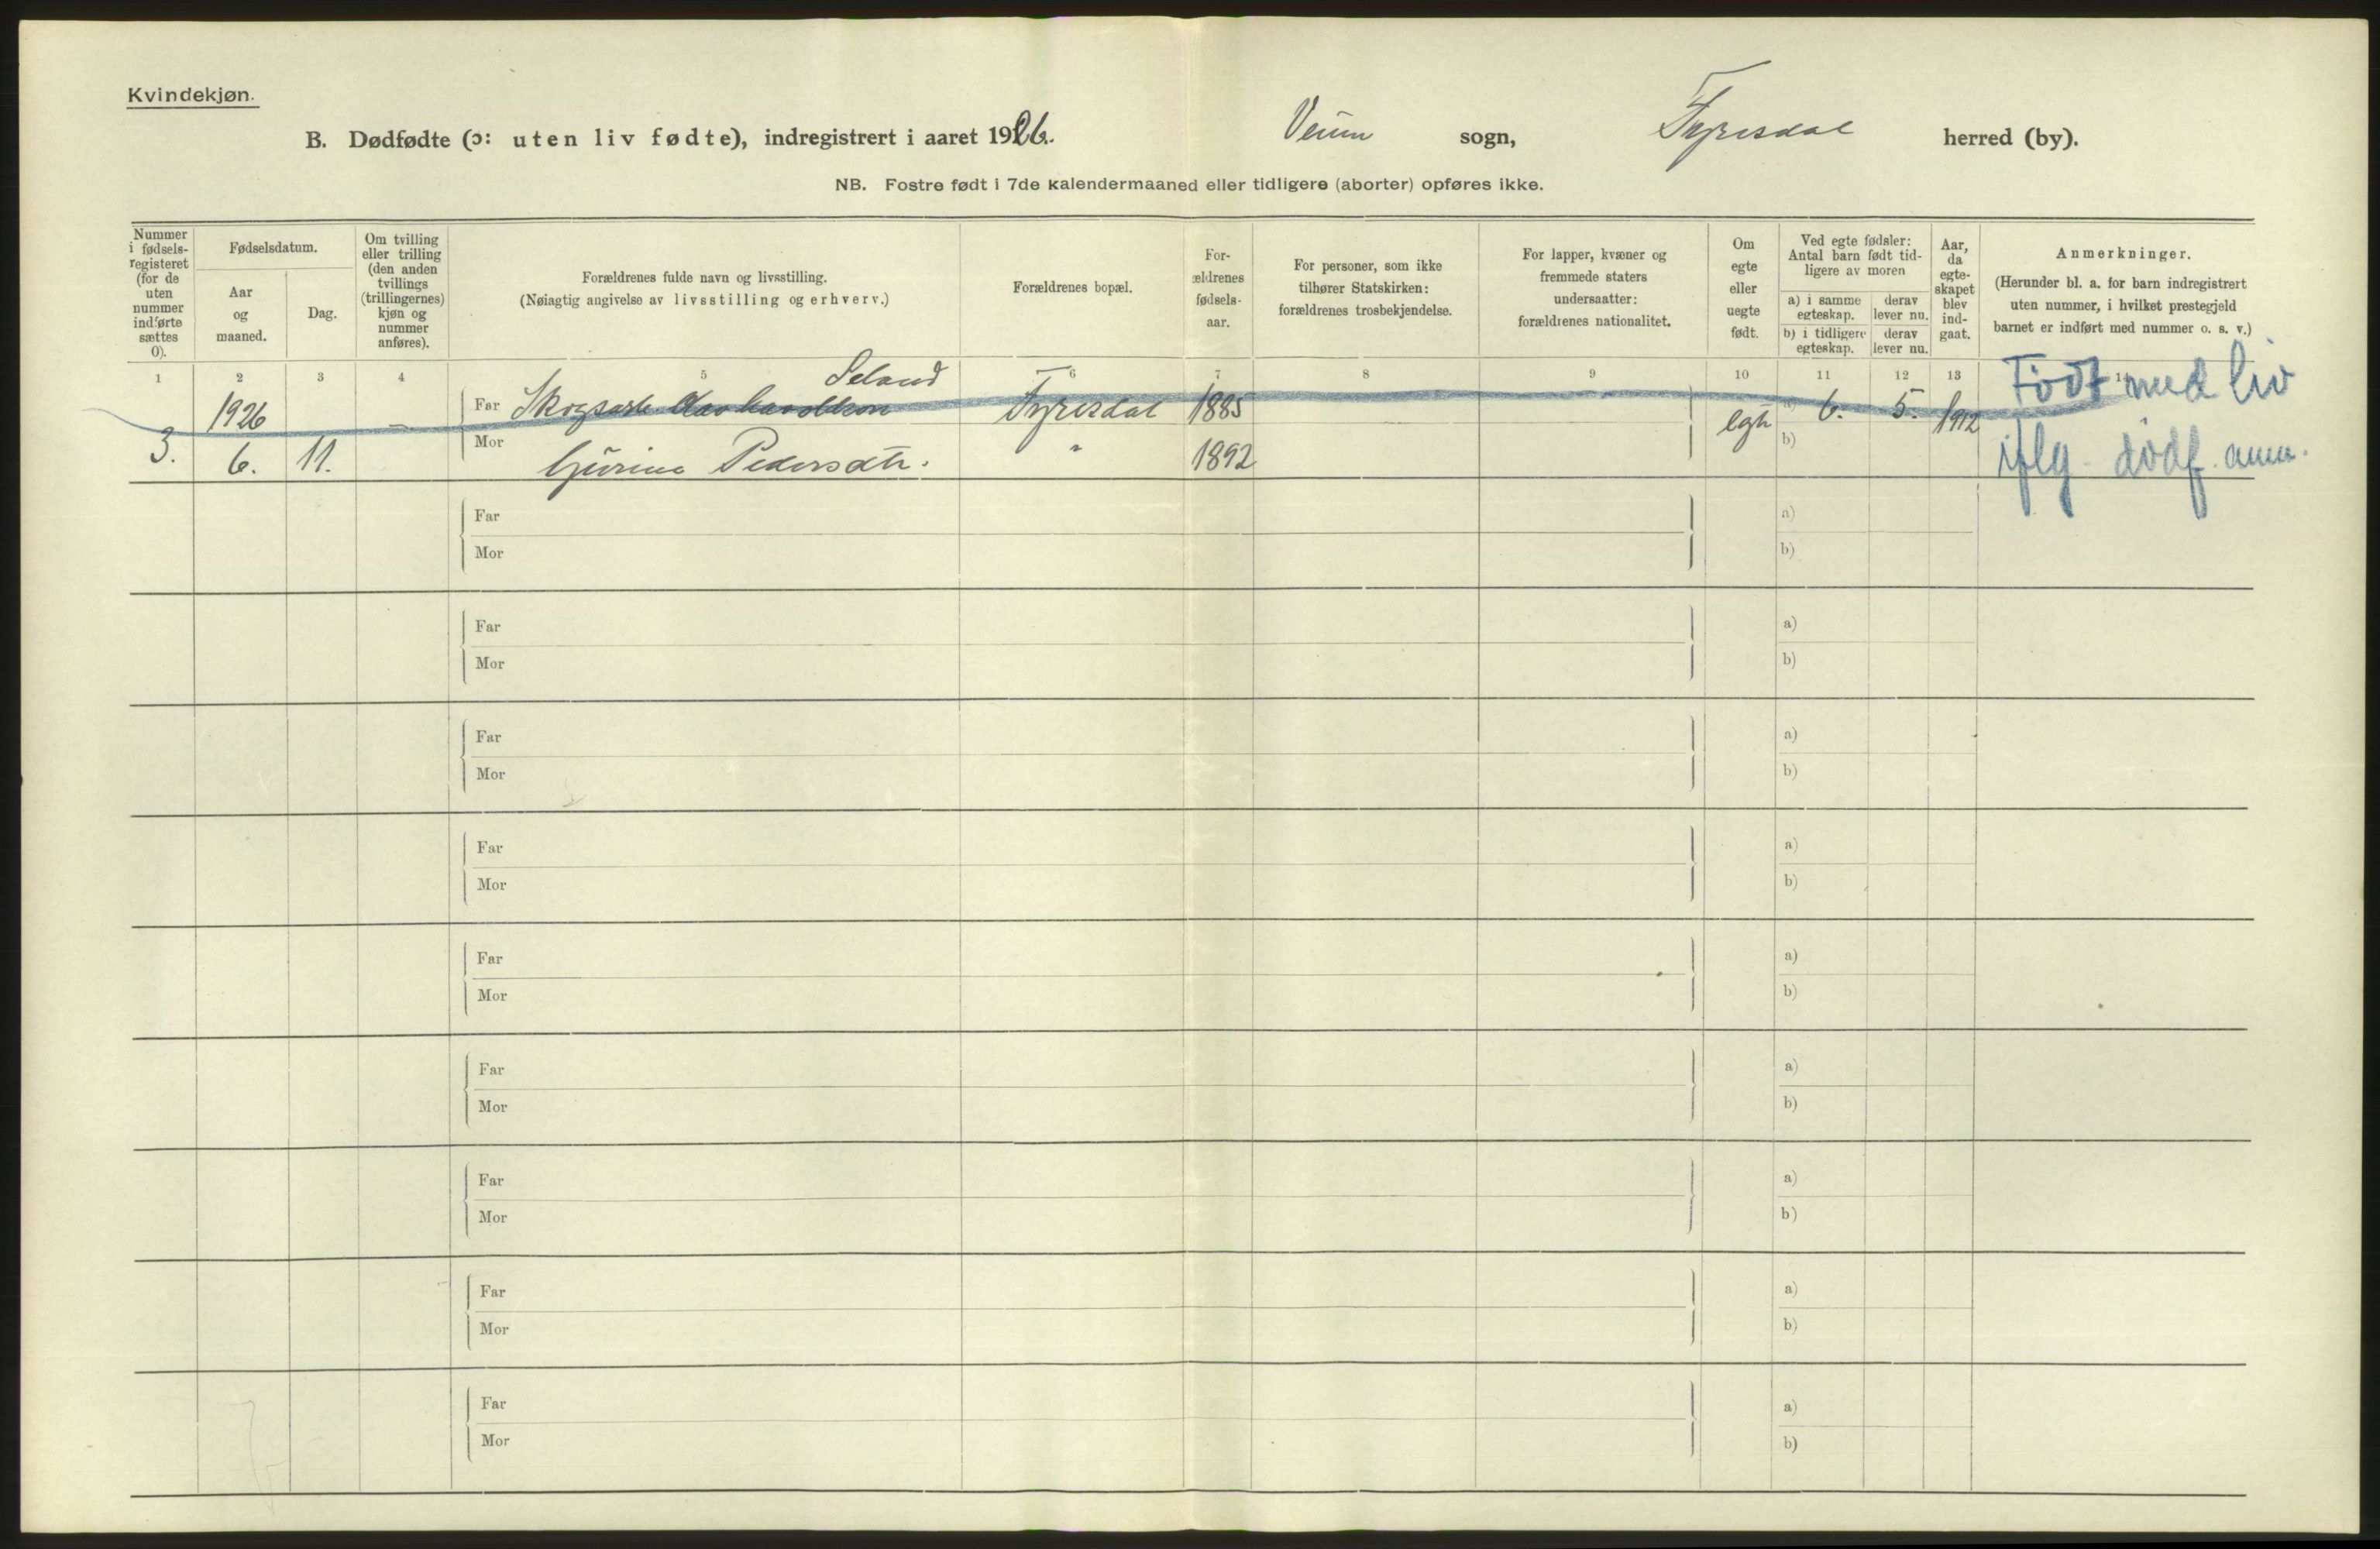 Kvindekjøn.
B. Dødfødte (ɔ: uten liv fødte), indregistrert i aaret 1926. Veum sogn, Fyresdal herred (by).
NB. Fostre født i 7de kalendermaaned eller tidligere (aborter) opføres ikke.
Nummer i fødsels-registeret (for de uten nummer indførte sættes 0).
Fødselsdatum.
Aar og maaned.
Dag.
Om tvilling eller trilling (den anden tvillings (trillingernes) kjøn og nummer anføres).
Forældrenes fulde navn og livsstilling.
(Nøiagtig angivelse av livsstilling og erhverv.)
Forældrenes bopæl.
For-ældrenes fødsels-aar.
For personer, som ikke tilhører Statskirken: forældrenes trosbekjendelse.
For lapper, kvæner og fremmede staters undersaatter: forældrenes nationalitet.
Om egte eller uegte født.
Ved egte fødsler: Antal barn født tid-ligere av moren
a) i samme egteskap. derav lever nu.
b) i tidligere egteskap. derav lever nu.
Aar, da egte-skapet blev ind-gaat.
Anmerkninger.
(Herunder bl. a. for barn indregistrert uten nummer, i hvilket prestegjeld barnet er indført med nummer o. s. v.)
1 2 3 4 5 6 7 8 9 10 11 12 13
Seland
3. 1926 6. 11. – Far Skogsarb. Olav Fyresdal 1885 egte a) 6. 5. 1912 Født med liv
Mor Gurine Pedersdtr. " 1892 b) iflg. dødf. anm.
Far a)
Mor b)
Far a)
Mor b)
Far a)
Mor b)
Far a)
Mor b)
Far a)
Mor b)
Far a)
Mor b)
Far a)
Mor b)
Far a)
Mor b)
Far a)
Mor b)